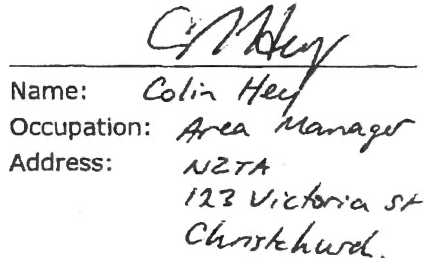 CMHey
Name: Colin Hey
Occupation: Area Manager
Address: NZTA
123 Victoria St
Christchurch.